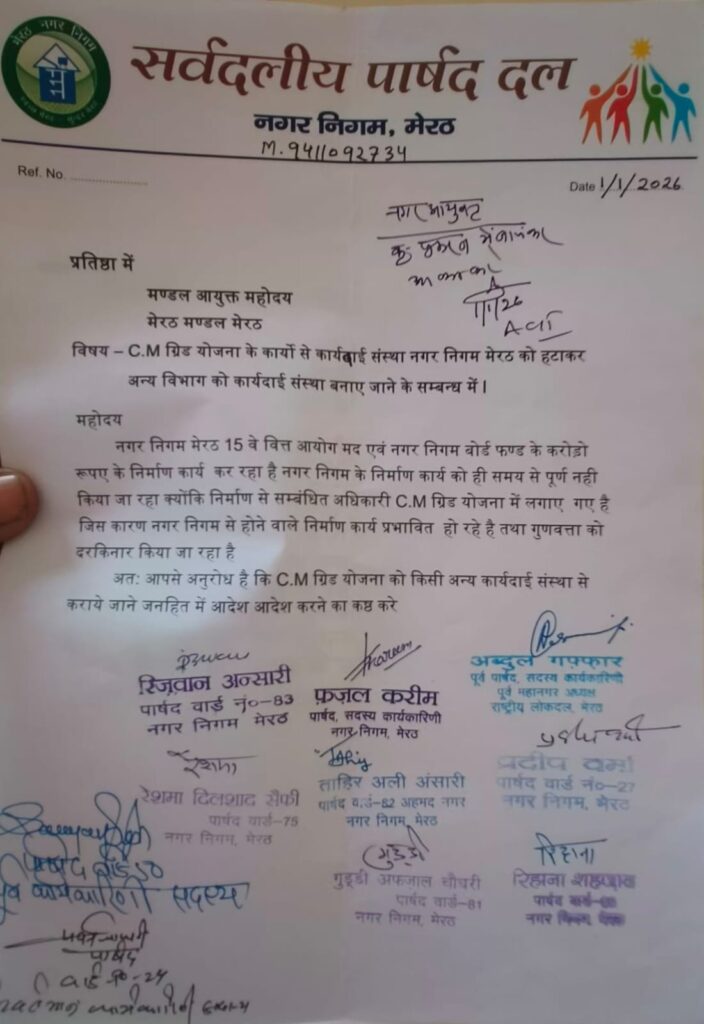 मेरठ नगर निगम
सर्वदलीय पार्षद दल
नगर निगम, मेरठ
M. 9411092734
Ref. No. ......................
Date 1/1/2026
नगर आयुक्त
1/1/26
प्रतिष्ठा में
मण्डल आयुक्त महोदय
मेरठ मण्डल मेरठ
विषय – C.M ग्रिड योजना के कार्यो से कार्यदाई संस्था नगर निगम मेरठ को हटाकर
अन्य विभाग को कार्यदाई संस्था बनाए जाने के सम्बन्ध में।
महोदय
नगर निगम मेरठ 15 वे वित्त आयोग मद एवं नगर निगम बोर्ड फण्ड के करोडो
रूपए के निर्माण कार्य कर रहा है नगर निगम के निर्माण कार्य को ही समय से पूर्ण नही
किया जा रहा क्योंकि निर्माण से सम्बंधित अधिकारी C.M ग्रिड योजना में लगाए गए है
जिस कारण नगर निगम से होने वाले निर्माण कार्य प्रभावित हो रहे है तथा गुणवत्ता को
दरकिनार किया जा रहा है
अतः आपसे अनुरोध है कि C.M ग्रिड योजना को किसी अन्य कार्यदाई संस्था से
कराये जाने जनहित में आदेश आदेश करने का कष्ठ करे
रिज़वान अन्सारी
पार्षद वार्ड नं०–83
नगर निगम मेरठ
फ़ज़ल करीम
पार्षद, सदस्य कार्यकारिणी
नगर निगम, मेरठ
अब्दुल गफ़्फार
पूर्व पार्षद, सदस्य कार्यकारिणी
पूर्व महानगर अध्यक्ष
राष्ट्रीय लोकदल, मेरठ
रेशमा
रेशमा दिलशाद सैफी
पार्षद वार्ड–75
नगर निगम, मेरठ
ताहिर अली अंसारी
पार्षद वार्ड–82 अहमद नगर
नगर निगम, मेरठ
प्रदीप वर्मा
पार्षद वार्ड नं०–27
नगर निगम, मेरठ
पार्षद वार्ड 50
पूर्व कार्यकारिणी सदस्य
गुड्डी
गुड्डी अफजाल चौधरी
पार्षद वार्ड–81
नगर निगम, मेरठ
रिहाना
रिहाना
पार्षद वार्ड
नगर निगम मेरठ
पार्षद
वार्ड नं०-24